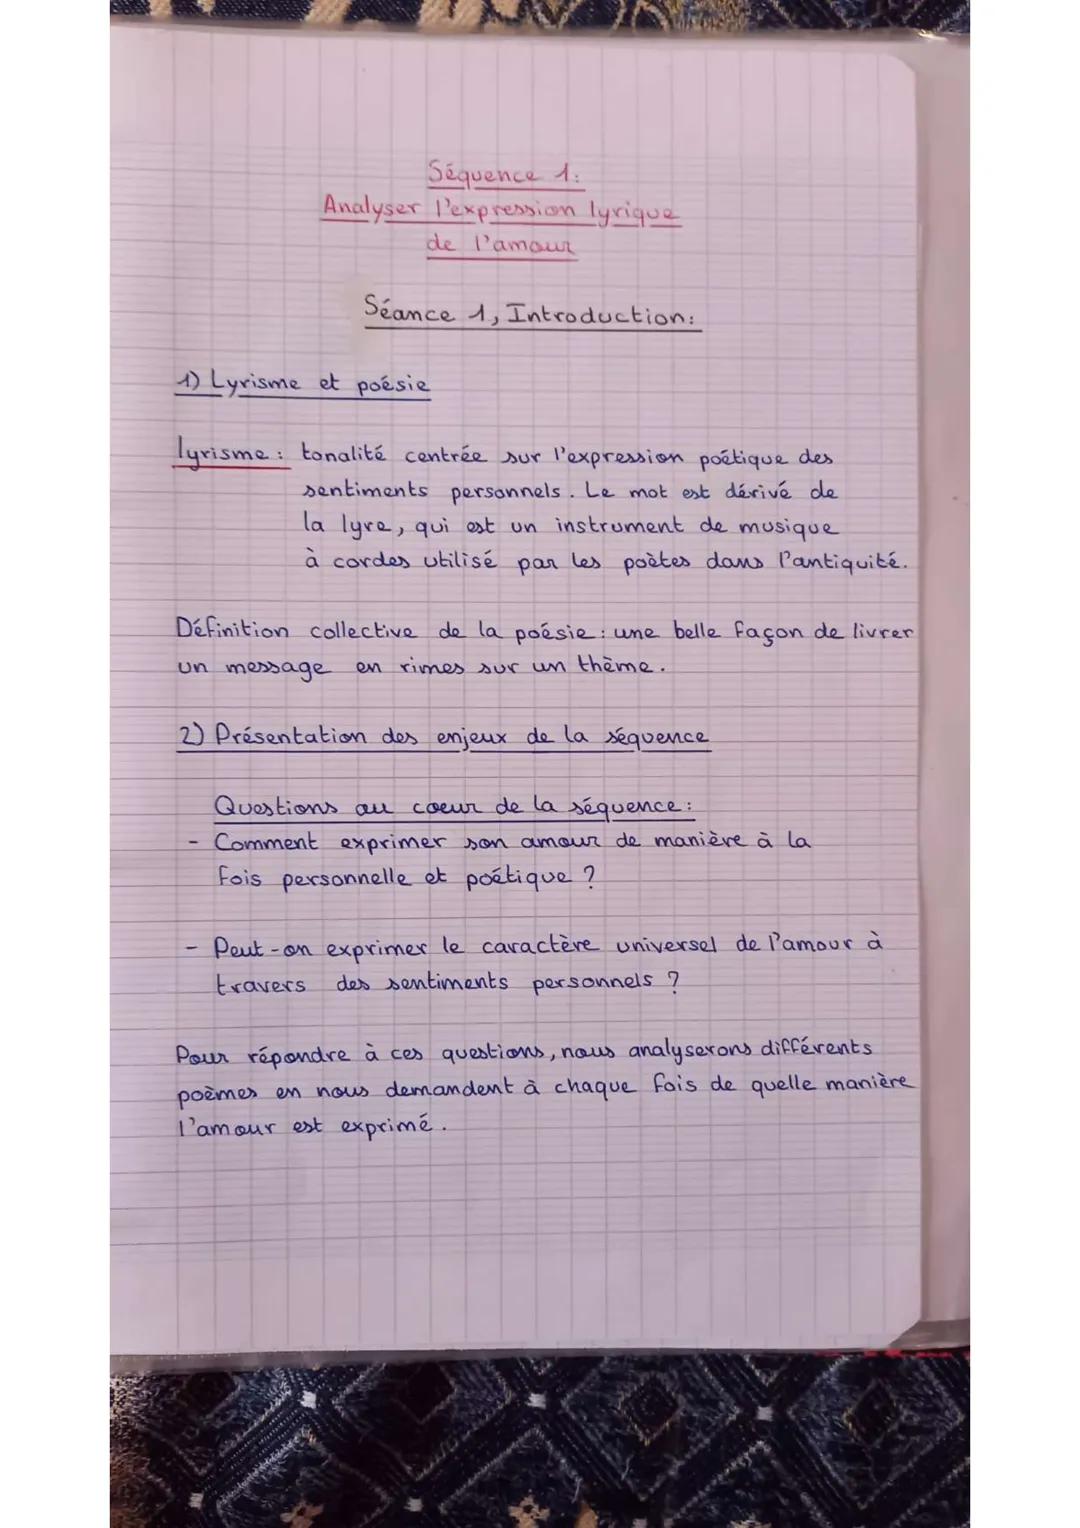 Séquence 1:
Analyser l'expression lyrique
de l'amour
Séance 1, Introduction:
1) Lyrisme et poésie
lyrisme : tonalité centrée sur l'expression poétique des
sentiments personnels. Le mot est dérivé de
la lyre, qui est un instrument de musique
à cordes utilisé par les poètes dans l'antiquité.
Définition collective de la poésie : une belle façon de livrer
un message en rimes sur un thème.
2) Présentation des enjeux de la séquence
Questions au coeur de la séquence :
- Comment exprimer son amour de manière à la
fois personnelle et poétique ?
- Peut-on exprimer le caractère universel de l'amour à
travers des sentiments personnels ?
Pour répondre à ces questions, nous analyserons différents
poèmes en nous demandent à chaque fois de quelle manière
l'amour est exprimé.